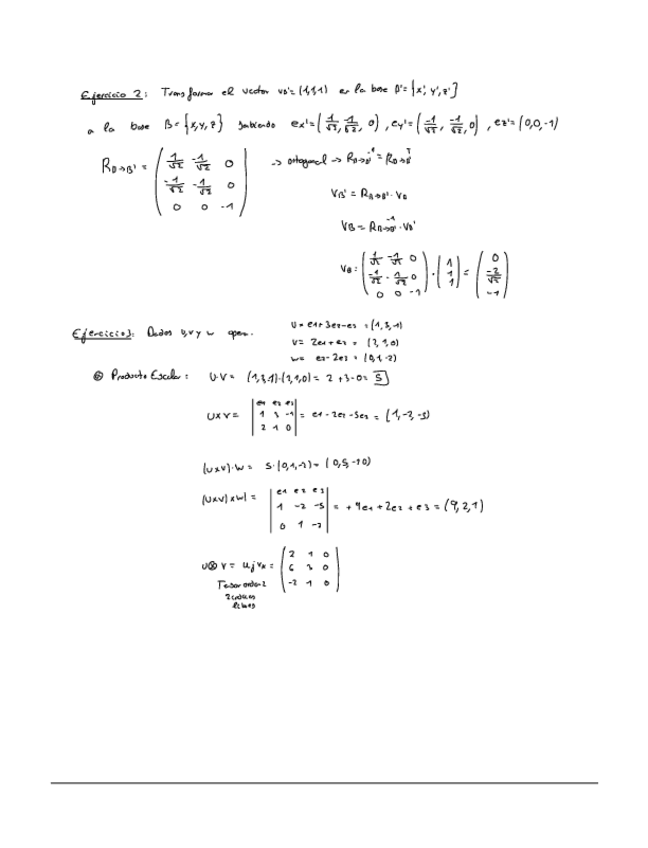 Ejercicio 2: Transformar el vector vB'=(1,1,1) en la base B'={x', y', z'}
a la base B={x,y,z} sabiendo ex'=(1/√2, -1/√2, 0), ey'=(-1/√2, -1/√2, 0), ez'=(0,0,-1)
RB→B' = (1/√2 -1/√2 0
-1/√2 -1/√2 0
0 0 -1)
→ ortogonal → RB→B'^-1 = RB→B'^T
VB' = RB→B' · VB
VB = RB→B'^-1 · VB'
VB = (1/√2 -1/√2 0
-1/√2 -1/√2 0
0 0 -1) · (1
1
1) = (0
-2/√2
-1)
Ejercicio 3: Dados u, v y w oper.
U = e1+3e2-e3 = (1,3,-1)
V = 2e1+e2 = (2,1,0)
w = e2-2e3 = (0,1,-2)
Producto Escalar: U·V = (1,3,-1)·(2,1,0) = 2+3-0 = 5
U×V = |e1 e2 e3
1 3 -1
2 1 0| = e1-2e2-5e3 = (1,-2,-5)
(u×v)·w = 5·(0,1,-2) = (0,5,-10)
(U×V)×w| = |e1 e2 e3
1 -2 -5
0 1 -2| = +9e1+2e2+e3 = (9,2,1)
U⊗V = uj vk = (2 1 0
6 3 0
-2 1 0)
Tensor orden 2
2 indices
libres